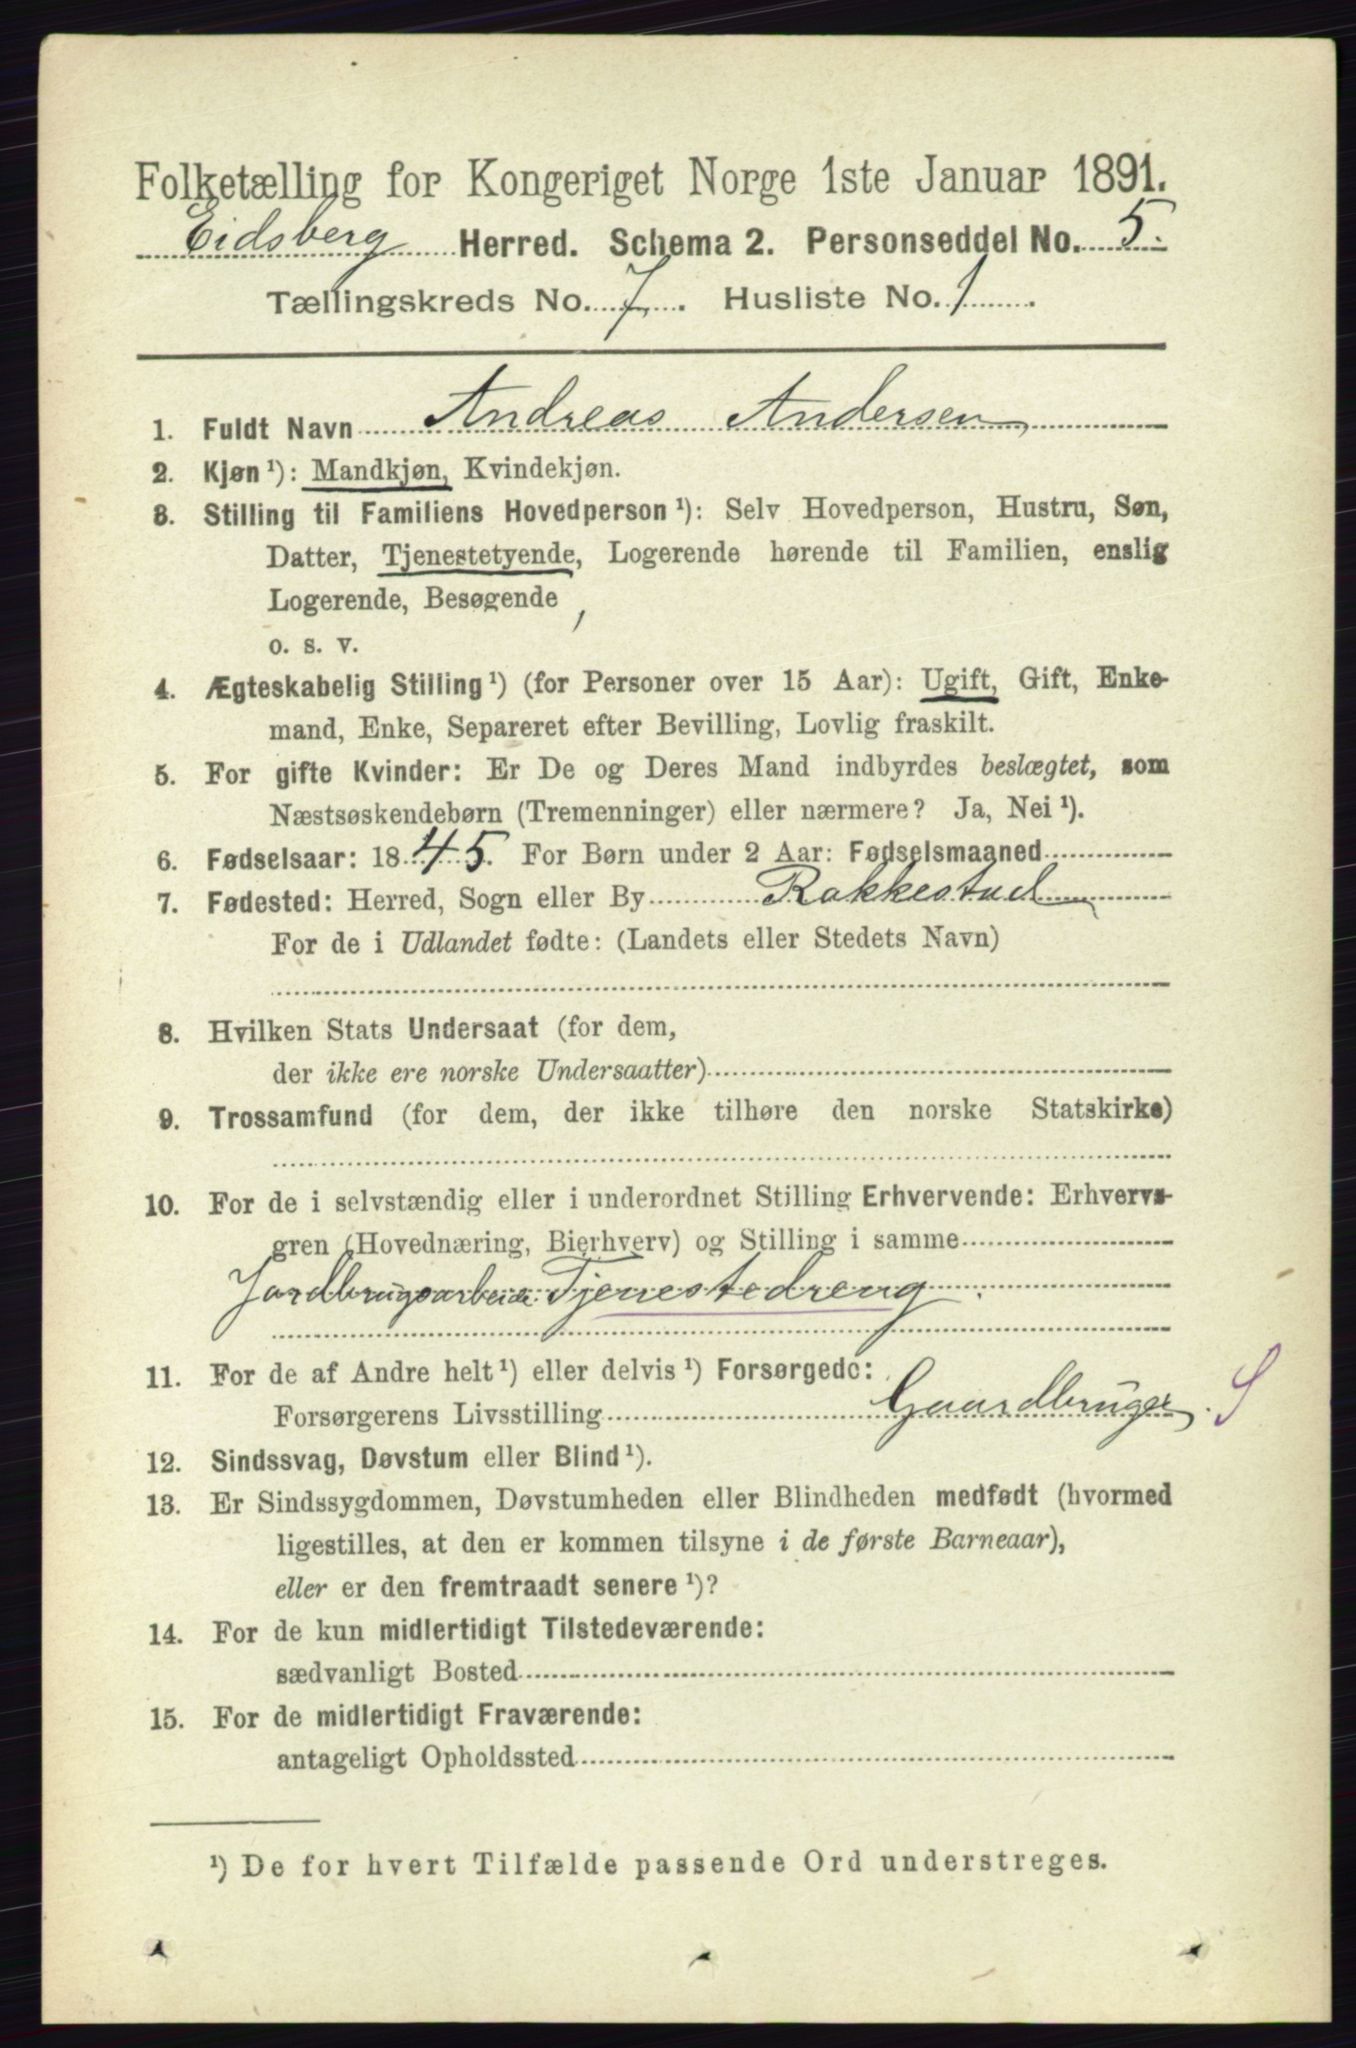 Folketælling for Kongeriget Norge 1ste Januar 1891.
Eidsberg Herred. Schema 2. Personseddel No. 5.
Tællingskreds No. 7. Husliste No. 1.
1. Fuldt Navn Andreas Andersen
2. Kjøn ¹): Mandkjøn, Kvindekjøn.
3. Stilling til Familiens Hovedperson ¹): Selv Hovedperson, Hustru, Søn,
Datter, Tjenestetyende, Logerende hørende til Familien, enslig
Logerende, Besøgende ,
o. s. v.
4. Ægteskabelig Stilling ¹) (for Personer over 15 Aar): Ugift, Gift, Enke-
mand, Enke, Separeret efter Bevilling, Lovlig fraskilt.
5. For gifte Kvinder: Er De og Deres Mand indbyrdes beslægtet, som
Næstsøskendebørn (Tremenninger) eller nærmere? Ja, Nei ¹).
6. Fødselsaar: 1845. For Børn under 2 Aar: Fødselsmaaned
7. Fødested: Herred, Sogn eller By Rakkestad
For de i Udlandet fødte: (Landets eller Stedets Navn)
8. Hvilken Stats Undersaat (for dem,
der ikke ere norske Undersaatter)
9. Trossamfund (for dem, der ikke tilhøre den norske Statskirke)
10. For de i selvstændig eller i underordnet Stilling Erhvervende: Erhvervs-
gren (Hovednæring, Bierhverv) og Stilling i samme
Jordbrugsarbeide. Tjenestedreng.
11. For de af Andre helt ¹) eller delvis ¹) Forsørgede:
Forsørgerens Livsstilling Gaardbruger. S
12. Sindssvag, Døvstum eller Blind ¹).
13. Er Sindssygdommen, Døvstumheden eller Blindheden medfødt (hvormed
ligestilles, at den er kommen tilsyne i de første Barneaar),
eller er den fremtraadt senere ¹)?
14. For de kun midlertidigt Tilstedeværende:
sædvanligt Bosted
15. For de midlertidigt Fraværende:
antageligt Opholdssted
¹) De for hvert Tilfælde passende Ord understreges.